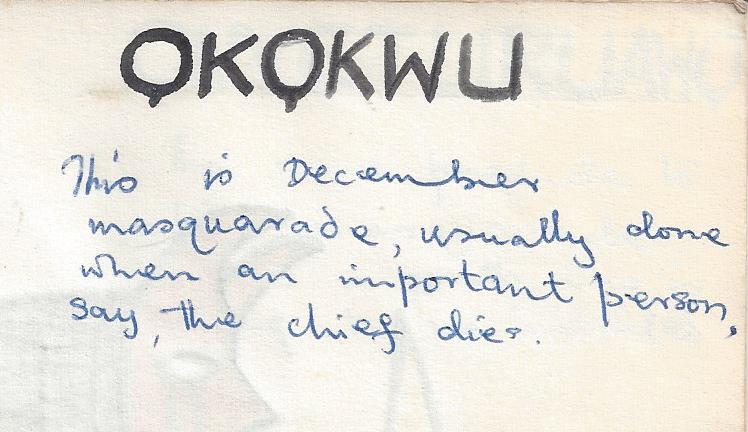 ỌKỌKWU
This is December
masquarade, usually done
when an important person,
say, the chief dies.